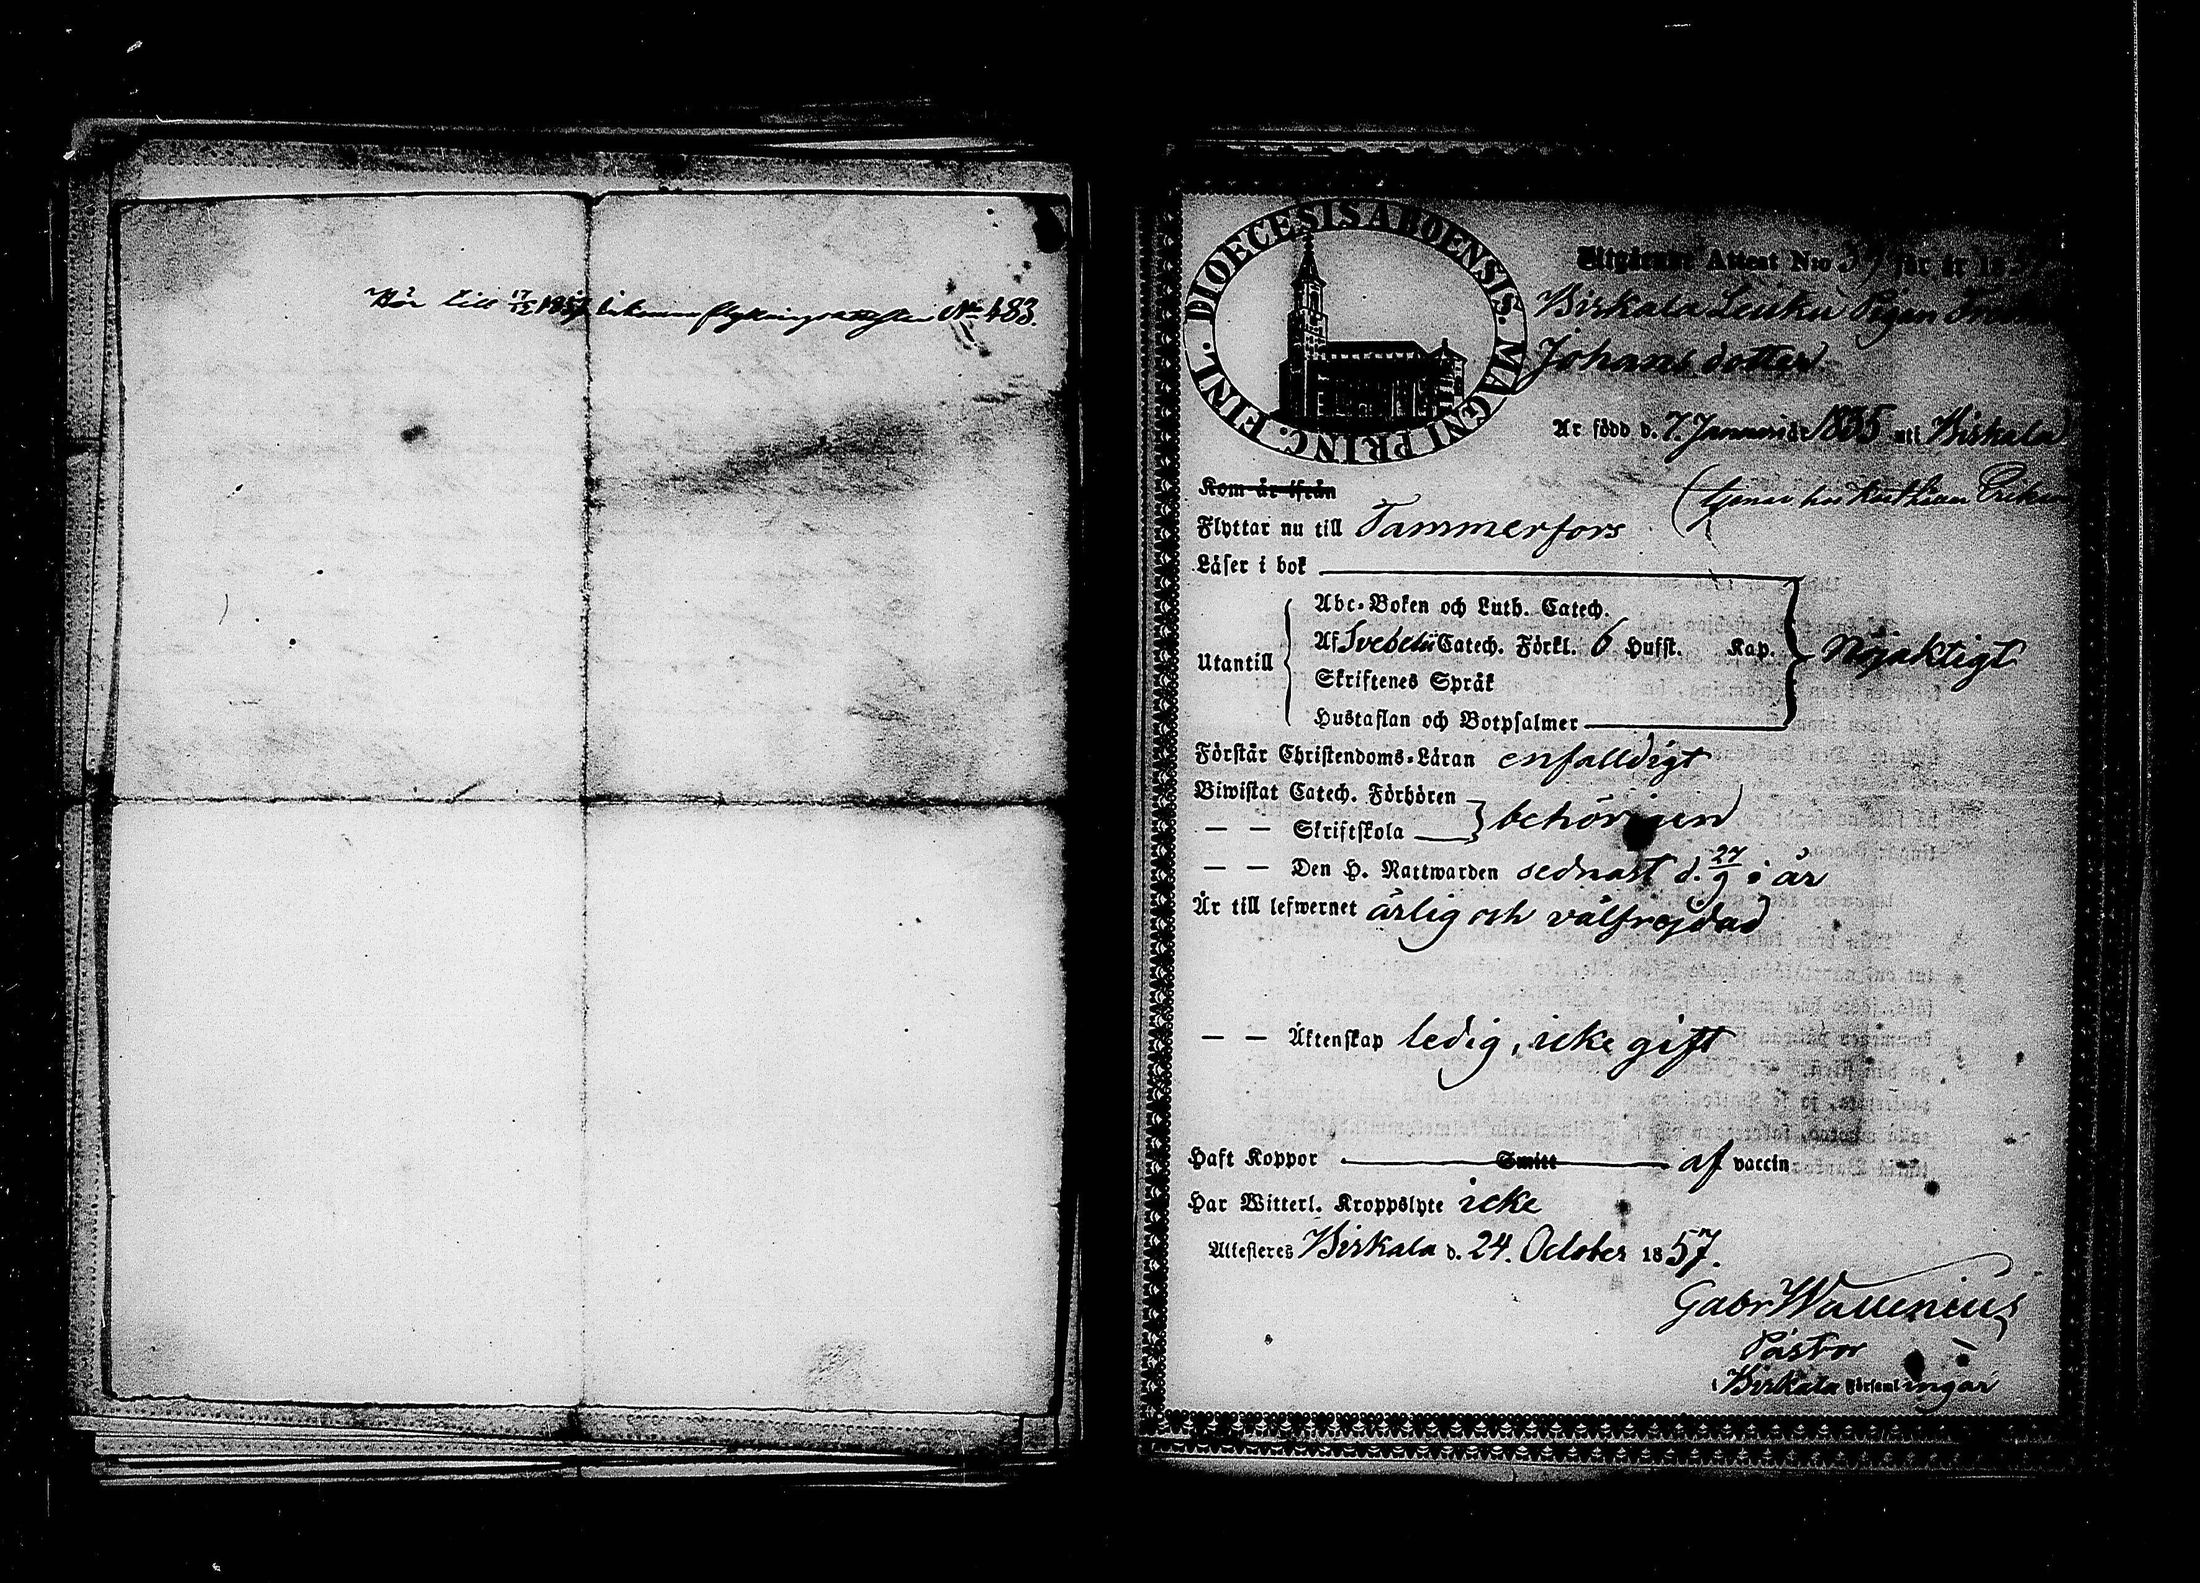 Hör till 17/12 1857 bekomne flyttningsattesten No 483.
DIOECESIS ABOENSIS. MAGNI PRINC. FINL.
Utgående Attest N:o 39 för år 1857
Birkala Leuku Pigan
Johansdotter
Är född d. 7. Januari år 1835 uti Birkala
Kom år ifrån
(tjenar hos
Flyttar nu till Tammerfors
Läser i bok
Abc-Boken och Luth. Catech.
Utantill Af Svebelii Catech. Förkl. 6 Hufst. Kap. nöjaktigt
Skriftenes Språk
Hustaflan och Botpsalmer
Förstår Christendoms-Läran enfalldigt
Biwistat Catech. Förhören
— — Skriftskola behörigen
— — Den H. Nattwarden sednast d. 27/9 i år
Är till lefwernet ärlig och välfrejdad
— — Äktenskap ledig, icke gift
Haft Koppor Smitt af vaccin
Har Witterl. Kroppslyte icke
Attesteres Birkala d. 24. October 1857.
Gabr Wallenius
Pastor
i Birkala Församlingar